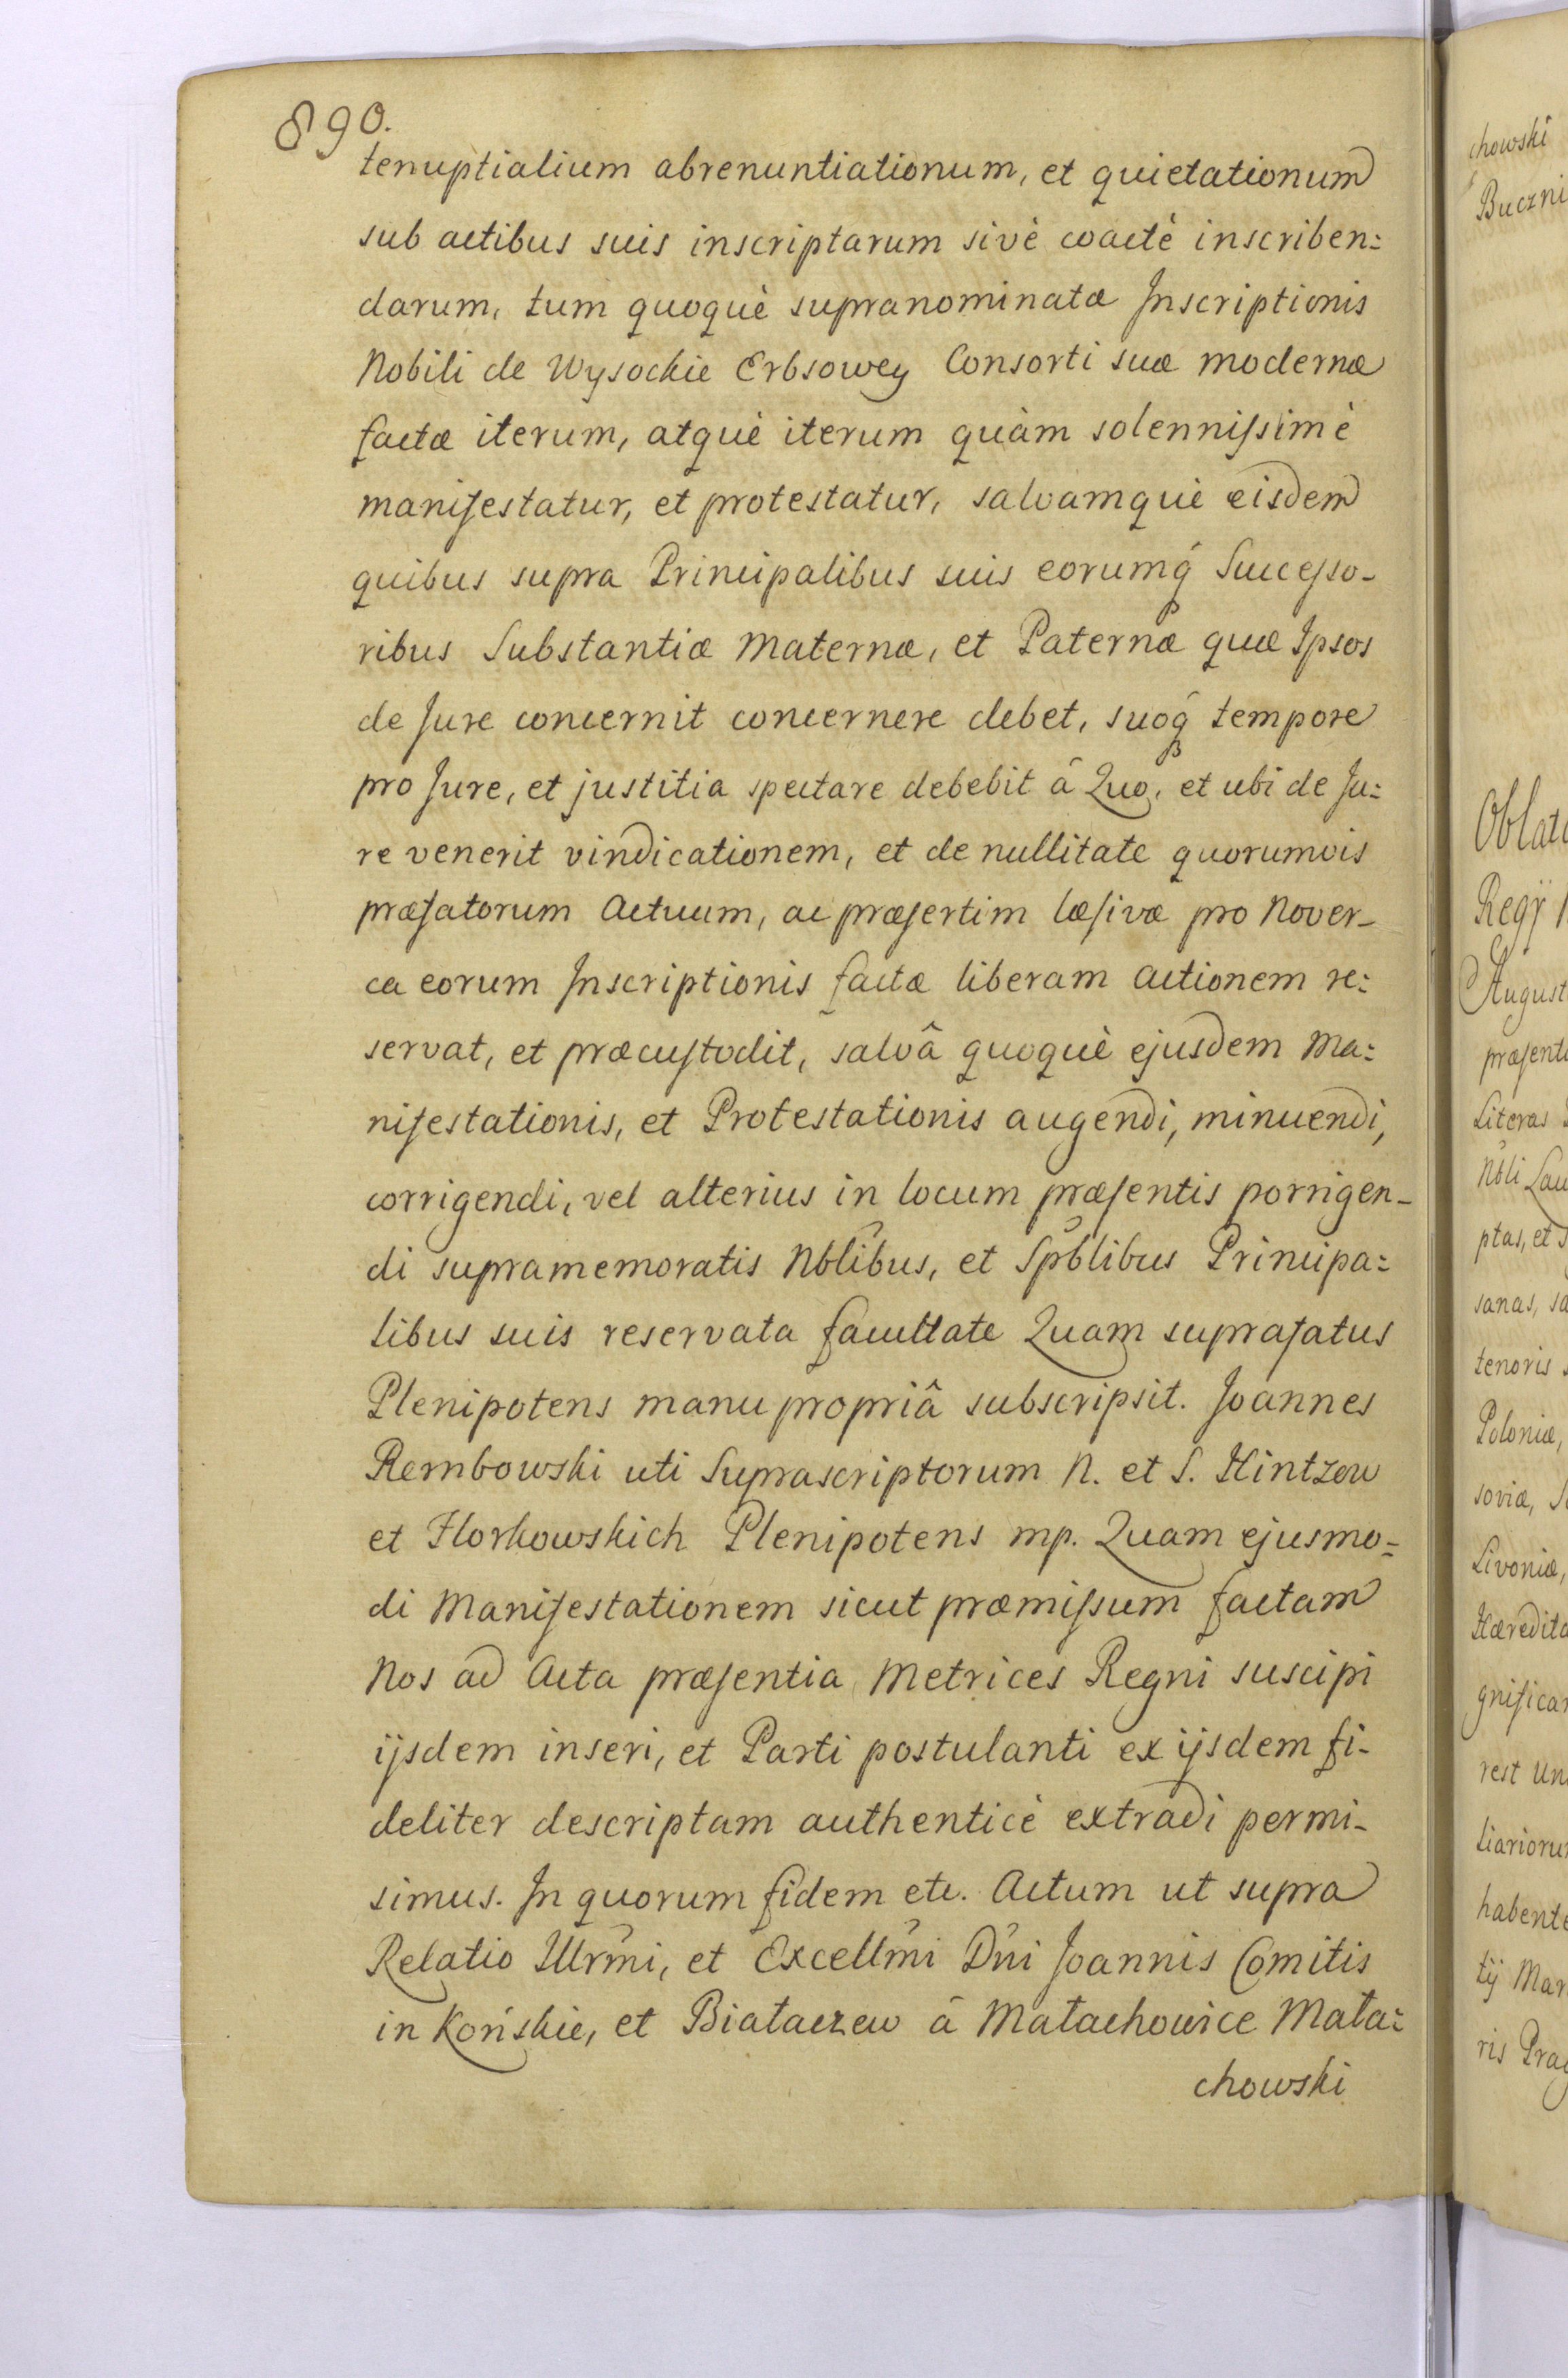 890.
tenuptialium abrenuntiationum, et quietationum
sub actibus suis inscriptarum sivè coactè inscriben=
darum, tum quoquè supranominatæ Inscriptionis
Nobili de Wysockie Erbsowey Consorti suæ modernæ
factæ iterum, atquè iterum quàm solennissimè
manifestatur, et protestatur, salvamquè eisdem
quibus supra Principalibus suis eorumq́ Successo-
ribus Substantiæ Maternæ, et Paternæ quæ Ipsos
de Jure concernit concernere debet, suoq́ tempore
pro Jure, et justitia spectare debebit â Quo, et ubi de Ju=
re venerit vindicationem, et de nullitate quorumvis
præfatorum Actuum, ac præsertim læsivæ pro Nover-
ca eorum Inscriptionis factæ liberam actionem re=
servat, et præcustodit, salvâ quoquè ejusdem Ma=
nifestationis, et Protestationis augendi, minuendi,
corrigendi, vel alterius in locum præsentis porrigen-
di supramemoratis Nblibus, et Spblibus Principa=
libus suis reservata facultate Quam suprafatus
Plenipotens manu propriâ subscripsit. Joannes
Rembowski uti Suprascriptorum N. et S. Hintzow
et Florkowskich Plenipotens mp. Quam ejusmo=
di Manifestationem sicut præmissum factam
Nos ad Acta præsentia Metrices Regni suscipi
ijsdem inseri, et Parti postulanti ex ijsdem fi-
deliter descriptam authenticè extradi permi-
simus. In quorum fidem etc. Actum ut supra
Relatio Illrmi, et Excellmi Dni Joannis Comitis
in Końskie, et Białaczew â Małachowice Mała=
chowski
chowski
Buczni
Oblat
Regÿ
August
præsent
Literas
Nbli Lau
ptas, et
sanas, sa
tenoris
Poloniæ,
soviæ, S
Livoniæ,
Hæredita
gnifica
rest Un
liarioru
habente
tij Mar
ris Pra